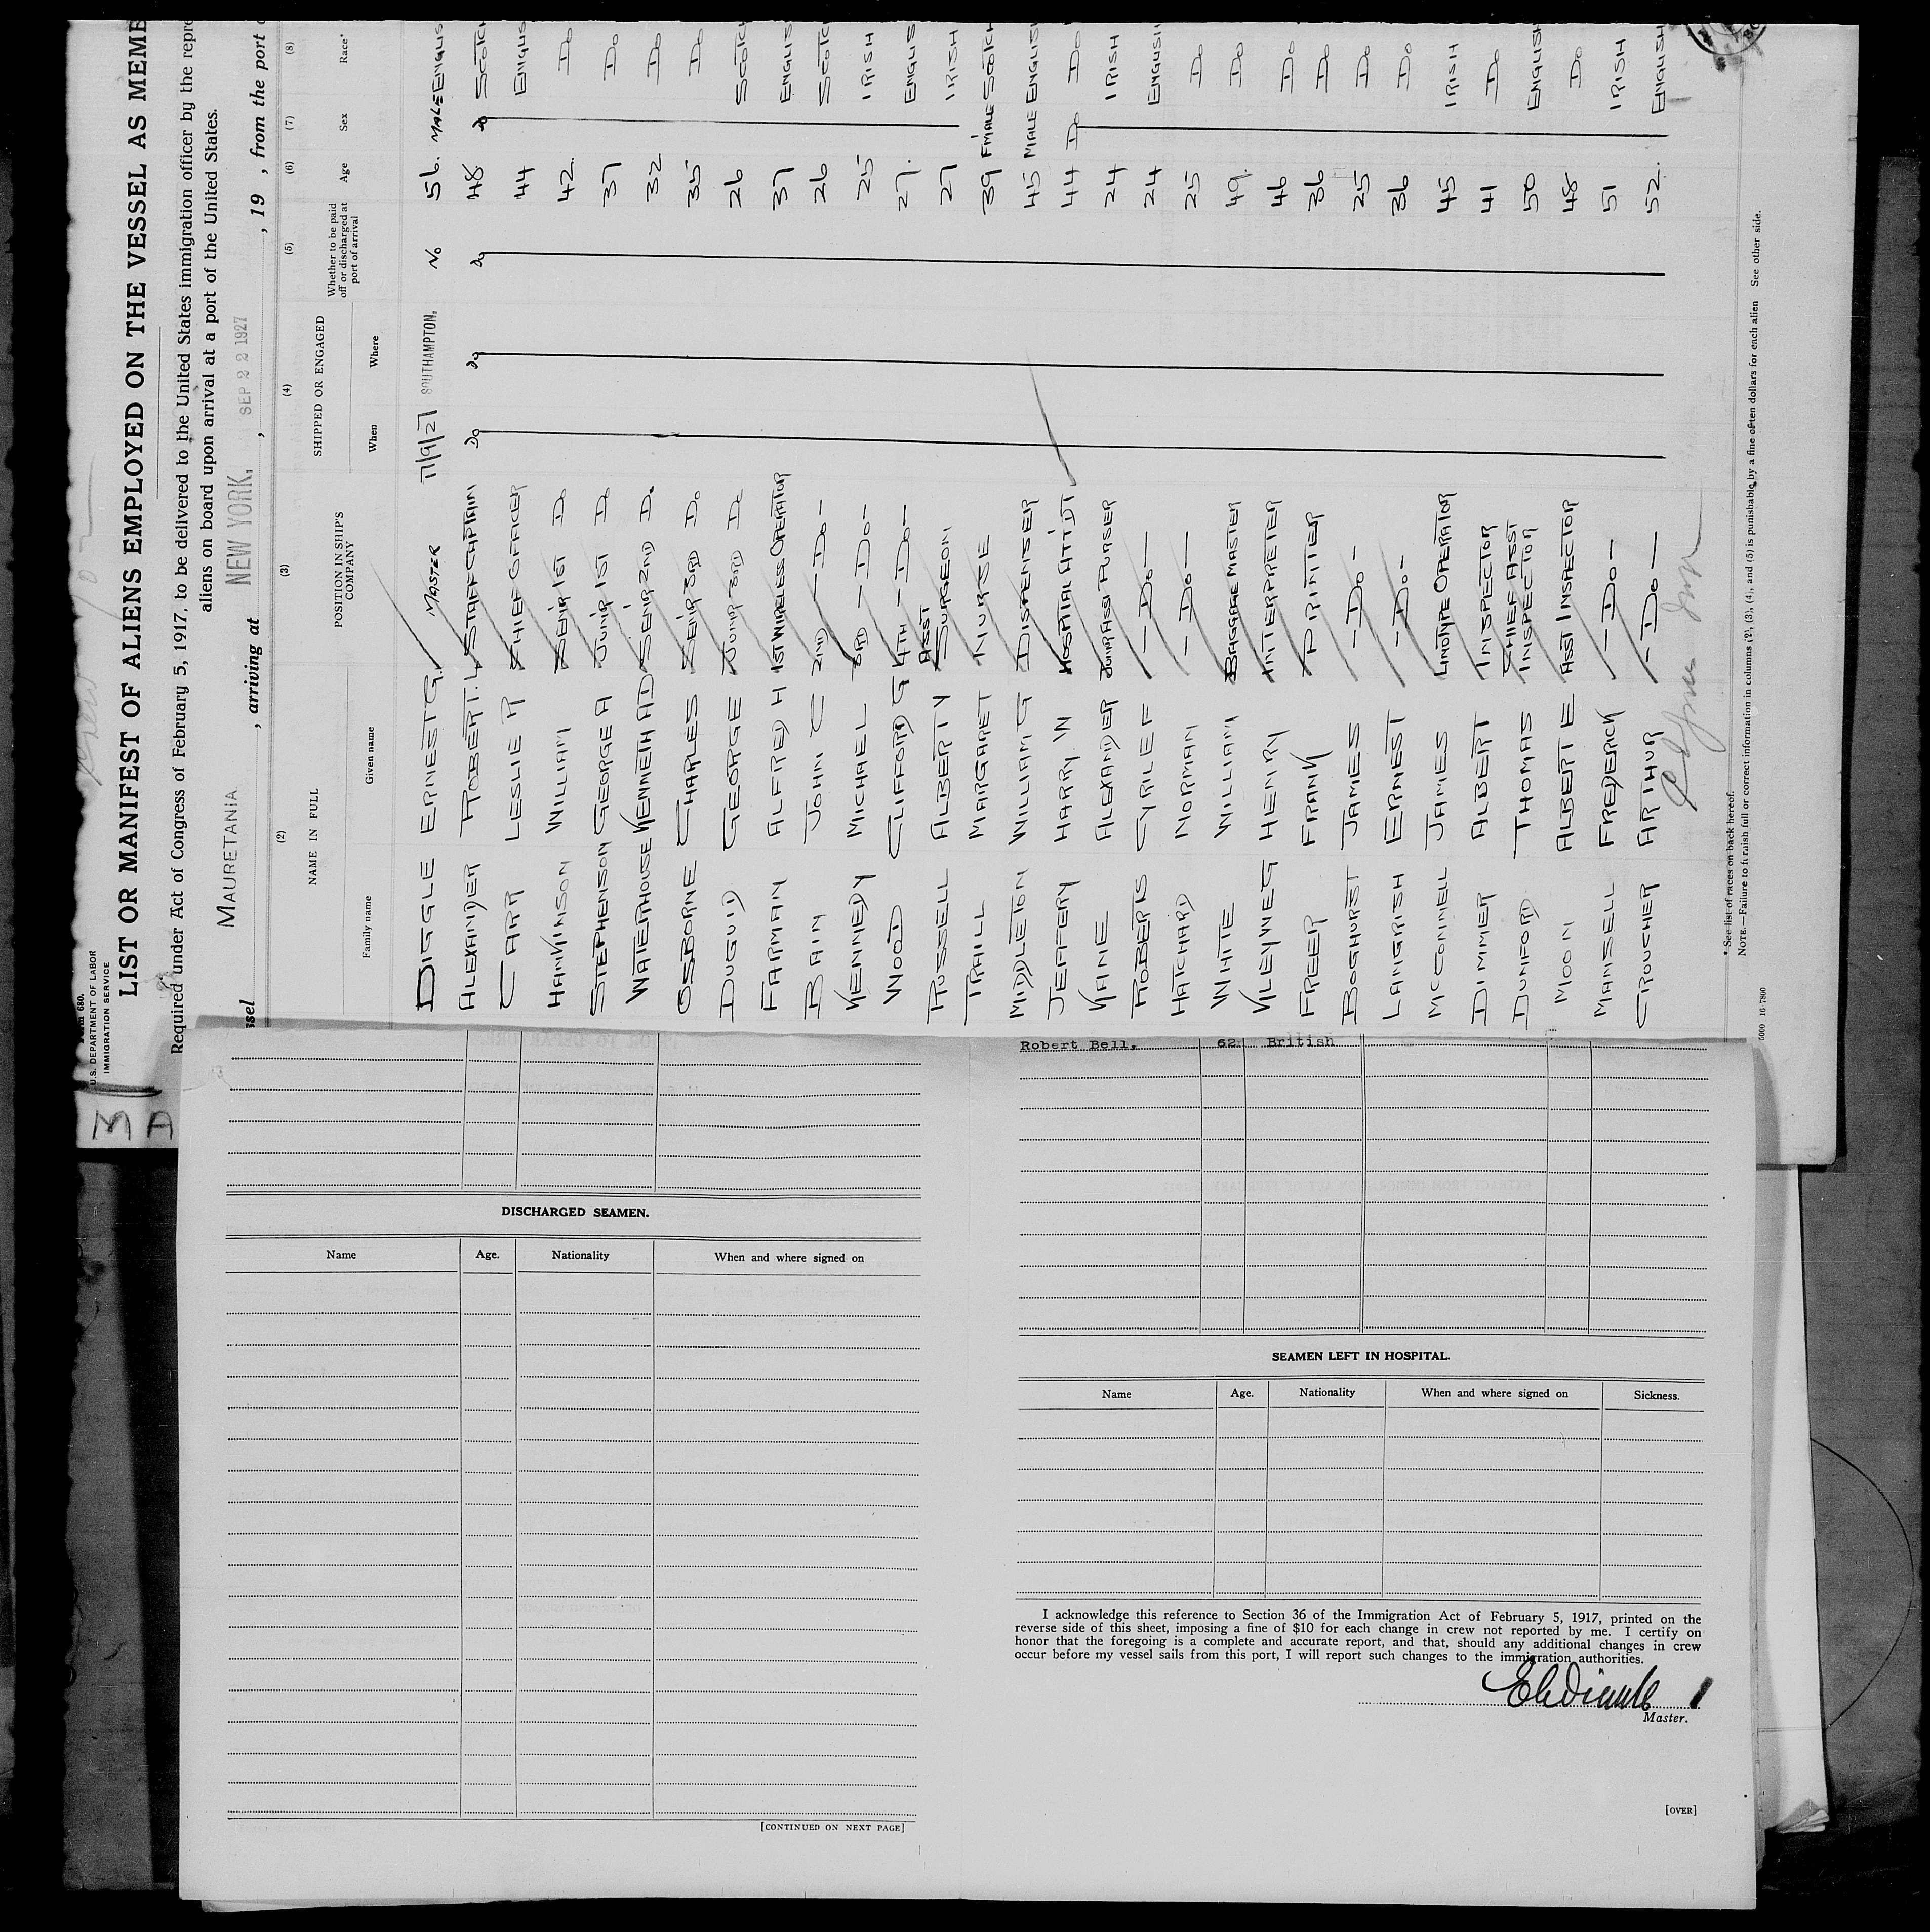 Form 680.
U.S. DEPARTMENT OF LABOR
IMMIGRATION SERVICE
LIST OR MANIFEST OF ALIENS EMPLOYED ON THE VESSEL AS MEMB
Required under Act of Congress of February 5, 1917, to be delivered to the United States immigration officer by the repre
aliens on board upon arrival at a port of the United States.
ssel MAURETANIA. , arriving at NEW YORK. SEP 22 1927 , , 19 , from the port
(2) (3) (4) (5) (6) (7) (8)
NAME IN FULL POSITION IN SHIP'S COMPANY SHIPPED OR ENGAGED Whether to be paid off or discharged at port of arrival Age Sex Race*
Family name Given name When Where
DIGGLE ERNEST G. MASTER 17/9/27 SOUTHAMPTON. No 56. MALE ENGLIS
ALEXANDER ROBERT. L STAFF CAPTAIN Do Do Do 48 Do SCOTCH
CARR LESLIE R CHIEF OFFICER 44 ENGLIS
HANKINSON WILLIAM SENR 1ST Do 42 Do
STEPHENSON GEORGE A JUNR 1ST Do 37 Do
WATERHOUSE KENNETH AD SENR 2ND Do 32 Do
OSBORNE CHARLES SENR 3RD Do 35 Do
DUGUID GEORGE JUNR 3RD Do 26 SCOTCH
FARMAN ALFRED H 1ST WIRELES. OPERATOR 37 ENGLIS
BAIN JOHN C 2ND - Do - 26 SCOTC
KENNEDY MICHAEL 3RD - Do - 25 IRISH
WOOD CLIFFORD G 4TH - Do - 27. ENGLIS
RUSSELL ALBERT V ASST SURGEON 27 IRISH
TRAILL MARGARET NURSE 39 F'MALE SCOTCH
MIDDLETON WILLIAM G DISPENSER 45 MALE ENGLISH
JEFFERY HARRY. W HOSPITAL ATT'DT 44 Do Do
KANE ALEXANDER JUNR ASST PURSER 24 IRISH
ROBERTS CYRILE F - Do - 24 ENGLISH
HATCHARD NORMAN - Do - 25 Do
WHITE WILLIAM BAGGAGE MASTER 49. Do
KLEYWEG HENRY INTERPRETER 46 Do
FREER FRANK PRINTER 36 Do
BOGHURST JAMES - Do - 25 Do
LANGRISH ERNEST - Do - 36 Do
McCONNELL JAMES LINOTYPE OPERATOR 45 IRISH
DIMMER ALBERT INSPECTOR 41 Do
DUNFORD THOMAS CHIEF ASST INSPECTOR 50 ENGLISH
MOON ALBERT E ASST INSPECTOR 48 Do
MANSELL FREDERICK - Do - 51 IRISH
CROUCHER ARTHUR - Do - 52. ENGLISH
* See list of races on back hereof.
NOTE.—Failure to furnish full or correct information in columns (2), (3), (4), and (5) is punishable by a fine of ten dollars for each alien See other side.
16 7800
MA
DISCHARGED SEAMEN.
Name Age. Nationality When and where signed on
[CONTINUED ON NEXT PAGE]
Robert Bell, 62 British
SEAMEN LEFT IN HOSPITAL.
Name Age. Nationality When and where signed on Sickness.
I acknowledge this reference to Section 36 of the Immigration Act of February 5, 1917, printed on the
reverse side of this sheet, imposing a fine of $10 for each change in crew not reported by me. I certify on
honor that the foregoing is a complete and accurate report, and that, should any additional changes in crew
occur before my vessel sails from this port, I will report such changes to the immigration authorities.
Master.
[OVER]